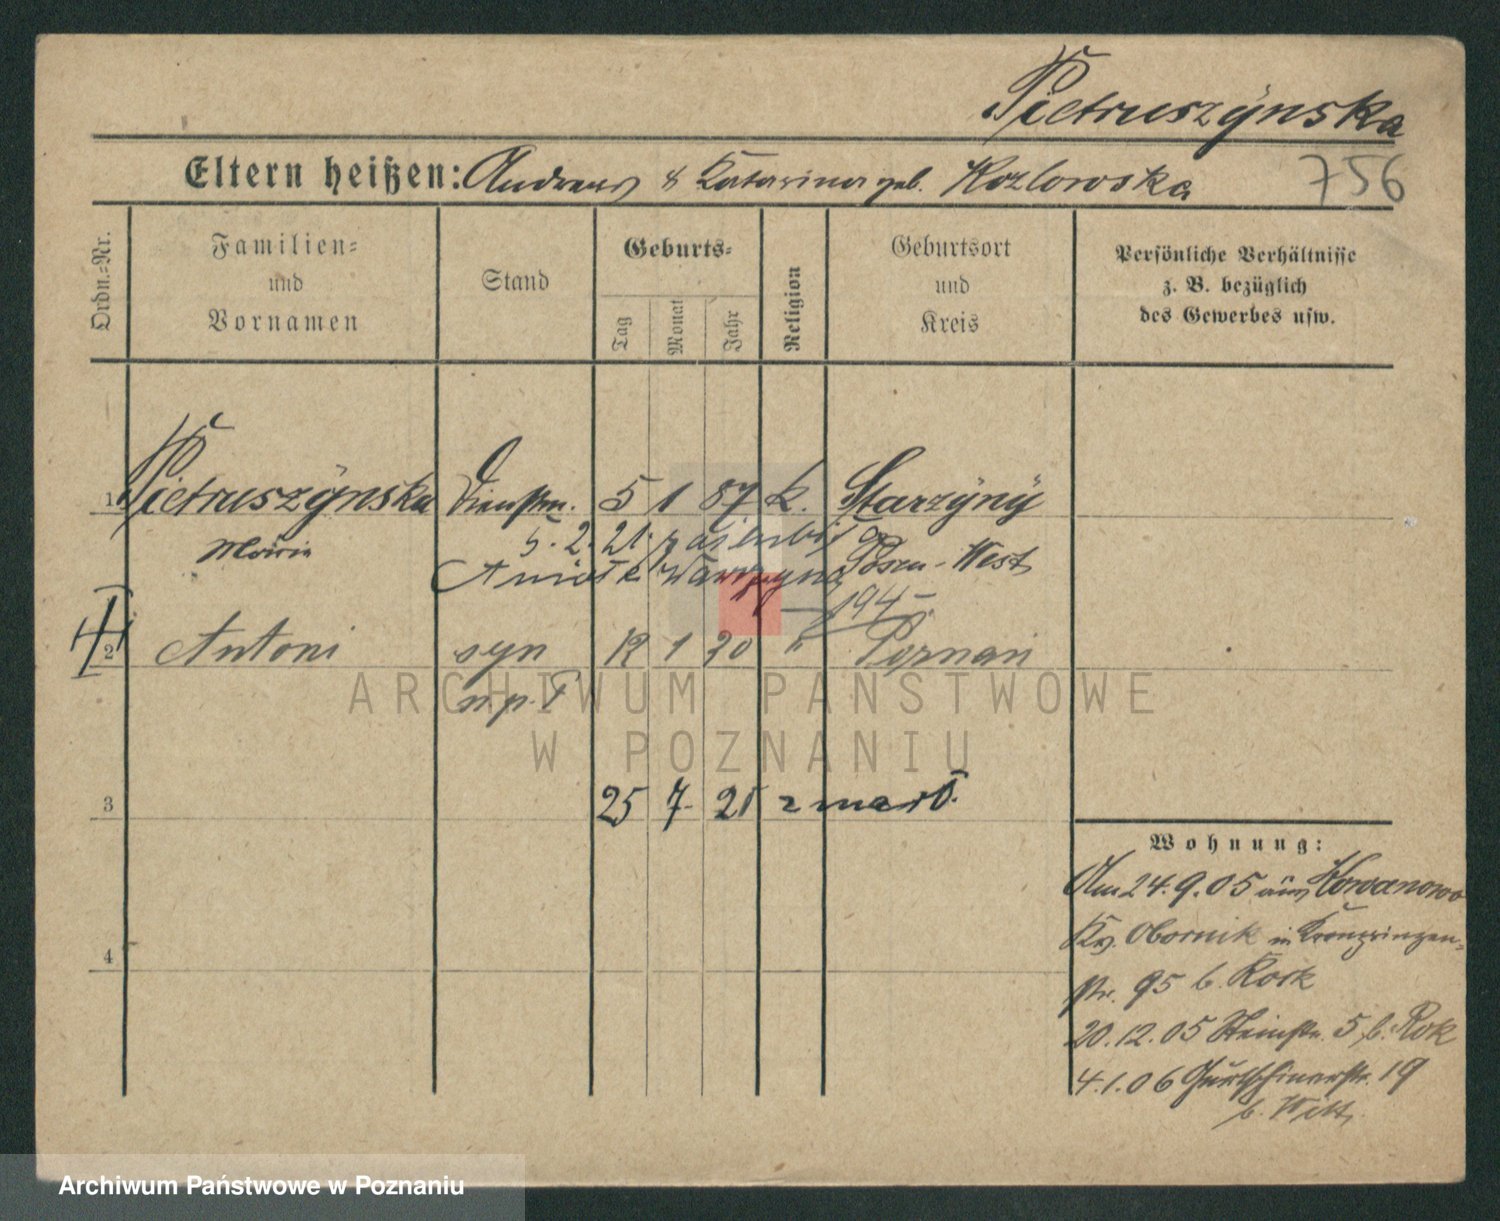 Pietruszÿnska
Eltern heißen: Andreas & Katarina geb. Kozlowska 756
Ordn.=Nr.
Familien=
und
Vornamen
Stand
Geburts=
Tag
Monat
Jahr
Religion
Geburtsort
und
Kreis
Persönliche Verhältnisse
z. B. bezüglich
des Gewerbes usw.
1 Pietruszÿnska Dienstm. 5 1 87 k. Starzÿnÿ
Maria
5. 2. 21.
Posen-West
194
2 Antoni syn 12 1 20 k Poznań
n.p.
ARCHIWUM PAŃSTWOWE
W POZNANIU
3 25 7 21 zmarł.
4
Wohnung:
Am 24.9.05 aus Kowanowo
Kr. Obornik in Kronprinzen-
str. 95 b.
20.12.05 5 b. Rok
4.1.06 Gurtschinerstr. 19
b. Witt
Archiwum Państwowe w Poznaniu